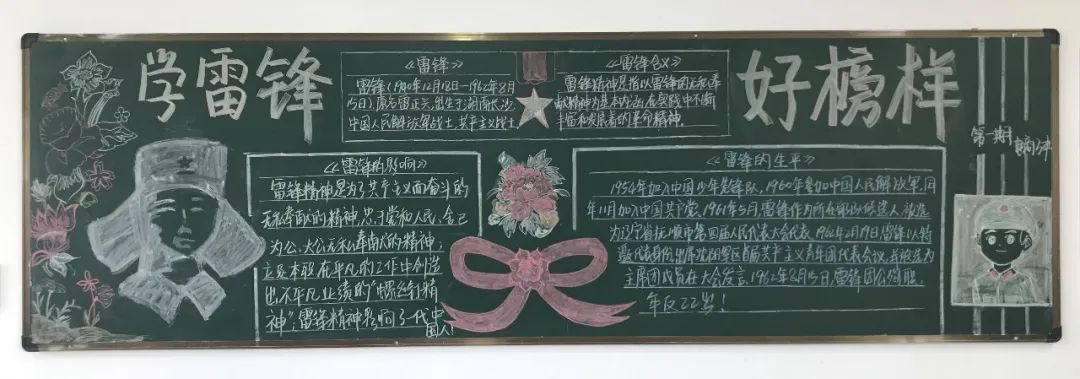 学雷锋
好榜样
《雷锋》
雷锋(1940年12月18日-1962年8月
15日),原名雷正兴,出生于湖南长沙,
中国人民解放军战士,共产主义战士
《雷锋含义》
雷锋精神是指以雷锋的无私奉
献精神为基本内涵,在实践中不断
丰富和发展着的革命精神。
第一期
《雷锋的影响》
雷锋精神是为了共产主义而奋斗的
无私奉献的精神,忠于党和人民,舍己
为公、大公无私奉献的精神;
立足本职,在平凡的工作中创造
出不平凡业绩的"螺丝钉精
神",雷锋精神影响了一代中
国人!
《雷锋的生平》
1954年加入中国少年先锋队,1960年参加中国人民解放军,同
年11月加入中国共产党,1961年5月,雷锋作为所在部队候选人,被选
为辽宁省抚顺市第四届人民代表大会代表,1962年2月19日,雷锋以特
邀代表身份出席沈阳军区首届共产主义青年团代表会议,并被选为
主席团成员在大会发言,1962年8月15日,雷锋因公殉职,
年仅22岁!